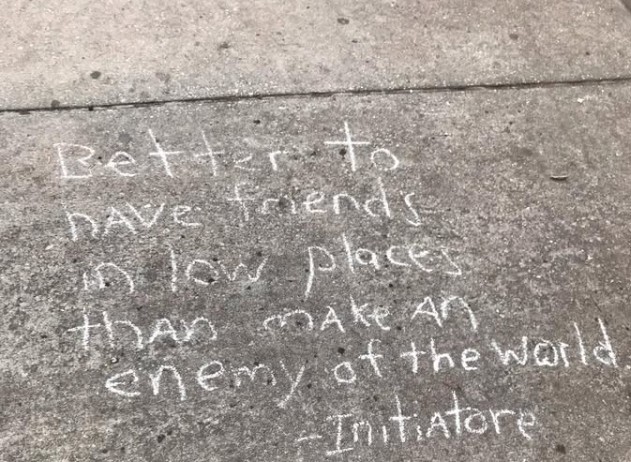 Better to
hAve friends
in low places
thAn mAke An
enemy of the world.
-InitiAtore